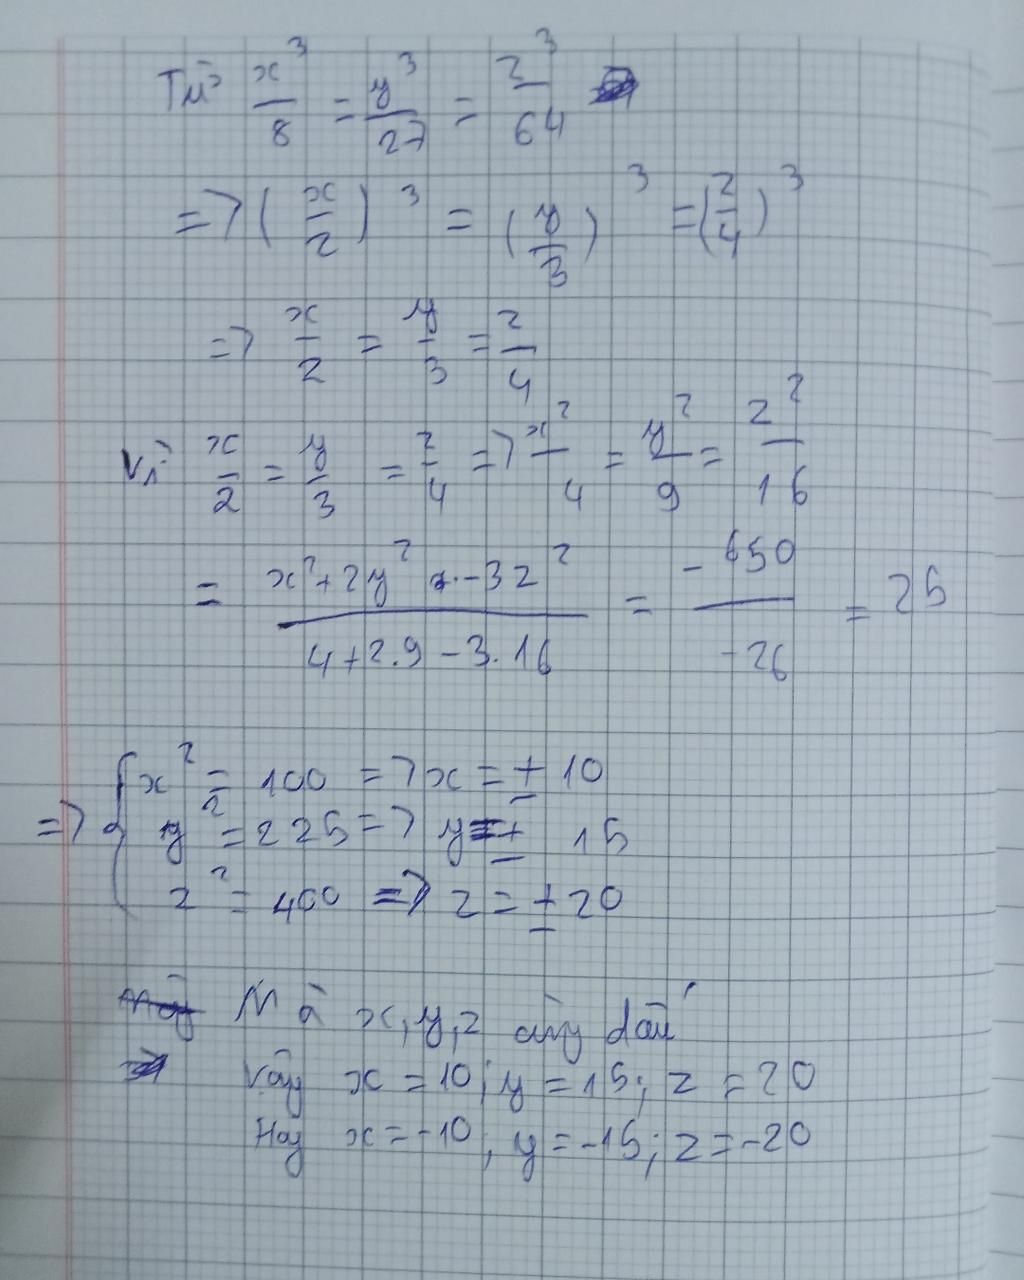 Từ x³/8 = y³/27 = z³/64
=> (x/2)³ = (y/3)³ = (z/4)³
=> x/2 = y/3 = z/4
Vì x/2 = y/3 = z/4 => x²/4 = y²/9 = z²/16
= (x² + 2y² - 3z²)/(4 + 2.9 - 3.16) = -650/-26 = 25
x² = 100 => x = ± 10
=> { y² = 225 => y = ± 15
z² = 400 => z = ± 20
Mà x, y, z cùng dấu
Vậy x = 10; y = 15; z = 20
Hay x = -10; y = -15; z = -20